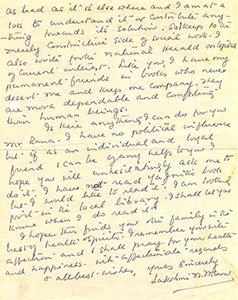 as bad as it is elsewhere and I am at a
loss to understand it or contribute any-
thing towards its solution. So I keep to the
merely constructive side of social work. I
also write for the National Herald on topics
of current interest. Like you, I have my
permanent friends in books who never
desert me and keep me company. They
are more dependable and comforting
than human beings.
Is there anything I can do for you
Mr. Rana. I have no political influence
but if as an individual and loyal
friend I can be of any help to you I
hope you will unhesitatingly ask me to
do it. I have not read
but I would like to read it. I am looking
for it in the local library. I shall let you
know when I do read it.
I hope this finds you & the family in the
best of health & spirits. I remember you with
affection and I shall pray for your health
and happiness. With affectionate regards
& all best wishes,
Yours Sincerely
Lakshmi N. Menon